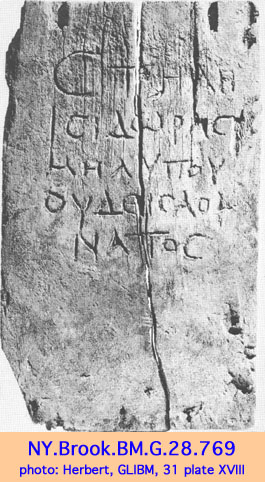 CΤΗΛΗ
ΙCΙΔωΡΑC
ΜΗΛΥΠΟΥ
ΟΥΔΕΙCΑΘΑ
ΝΑΤΟC
NY.Brook.BM.G.28.769
photo: Herbert, GLIBM, 31 plate XVIII